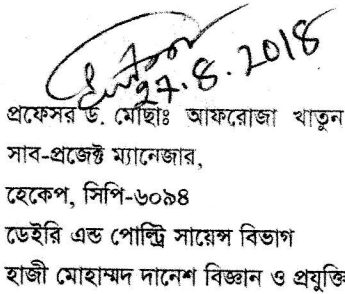 27.8.2018
প্রফেসর ড. মোছাঃ আফরোজা খাতুন
সাব-প্রজেক্ট ম্যানেজার,
হেকেপ, সিপি-৬০৯৪
ডেইরি এন্ড পোল্ট্রি সায়েন্স বিভাগ
হাজী মোহাম্মদ দানেশ বিজ্ঞান ও প্রযুক্তি